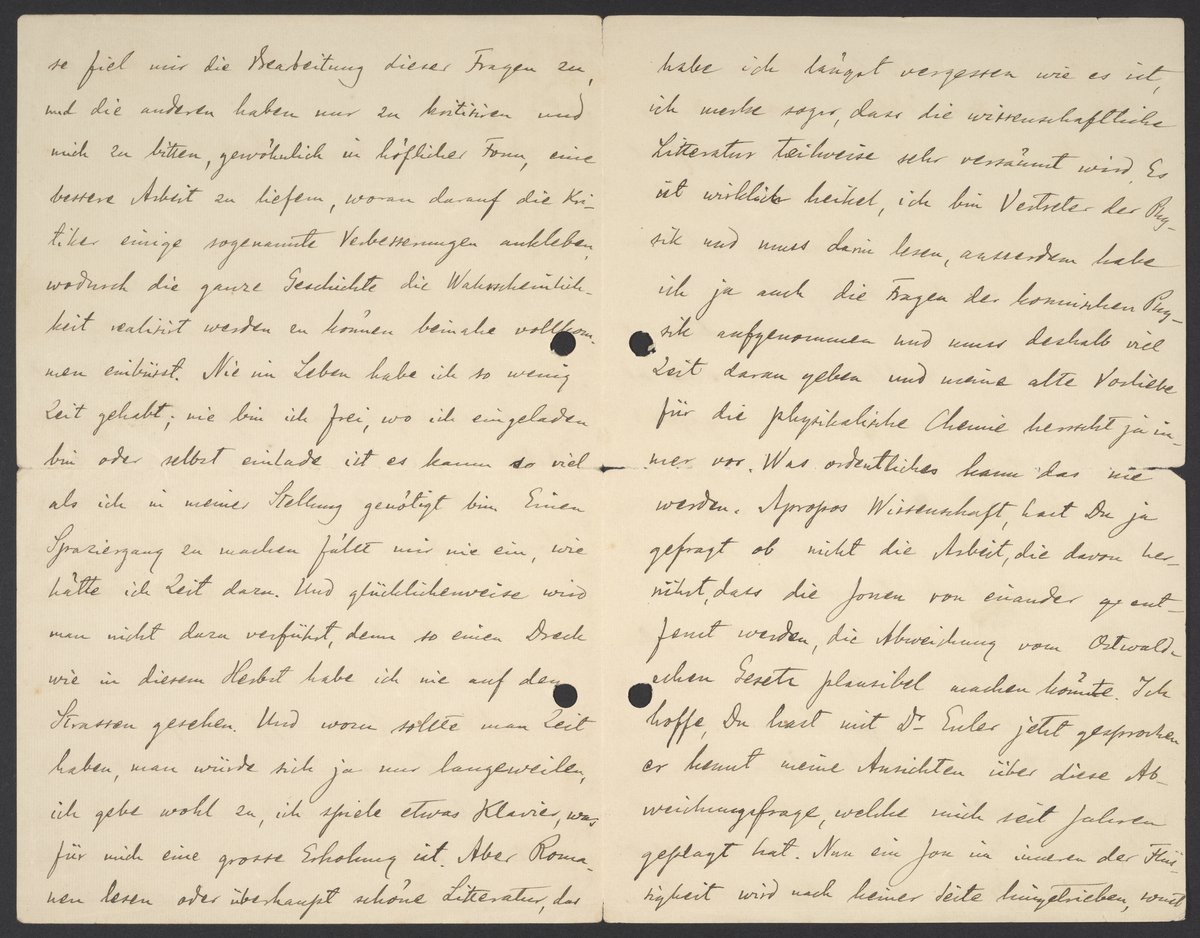 se fiel mir die Bearbeitung dieser Fragen zu,
und die anderen haben nur zu kritisiren und
mich zu bitten, gewöhnlich in höflicher Form, eine
bessere Arbeit zu liefern, woran darauf die Kri-
tiker einige sogenannte Verbesserungen ankleben,
wodurch die ganze Geschichte die Wahrscheinlich-
keit realisirt werden zu können beinahe vollkom-
men einbüsst. Nie im Leben habe ich so wenig
Zeit gehabt; nie bin ich frei, wo ich eingeladen
bin oder selbst einlade ist es kaum so viel
als ich in meiner Stellung genötigt bin. Einen
Spaziergang zu machen fällt mir nie ein, wie
hätte ich Zeit dazu. Und glücklicherweise wird
man nicht dazu verführt, denn so einen Dreck
wie in diesem Herbst habe ich nie auf den
Strassen gesehen. Und wozu sollte man Zeit
haben, man würde sich ja nur langeweilen,
ich gebe wohl zu, ich spiele etwas Klavier, was
für mich eine grosse Erholung ist. Aber Roma-
nen lesen oder überhaupt schöne Litteratur, das
habe ich längst vergessen wie es ist,
ich merke sogar, dass die wissenschaftliche
Litteratur teilweise sehr versäumt wird. Es
ist wirklich heikel, ich bin Vertreter der Phy-
sik und muss darin lesen, ausserdem habe
ich ja auch die Fragen der kosmischen Phy-
sik aufgenommen und muss deshalb viel
Zeit daran geben und meine alte Vorliebe
für die physikalische Chemie herrscht ja im-
mer vor. Was ordentliches kann das nie
werden. Apropos Wissenschaft, hast Du ja
gefragt ob nicht die Arbeit, die davon her-
rührt, dass die Jonen von einander ent-
fernt werden, die Abweichung vom Ostwald-
schen Gesetz plausibel machen könnte. Ich
hoffe, Du hast mit Dr Euler jetzt gesprochen
er kennt meine Ansichten über diese Ab-
weichungsfrage, welche mich seit Jahren
geplagt hat. Nun ein Jon im inneren der Flüs-
sigkeit wird nach keiner Seite hingetrieben, sonst